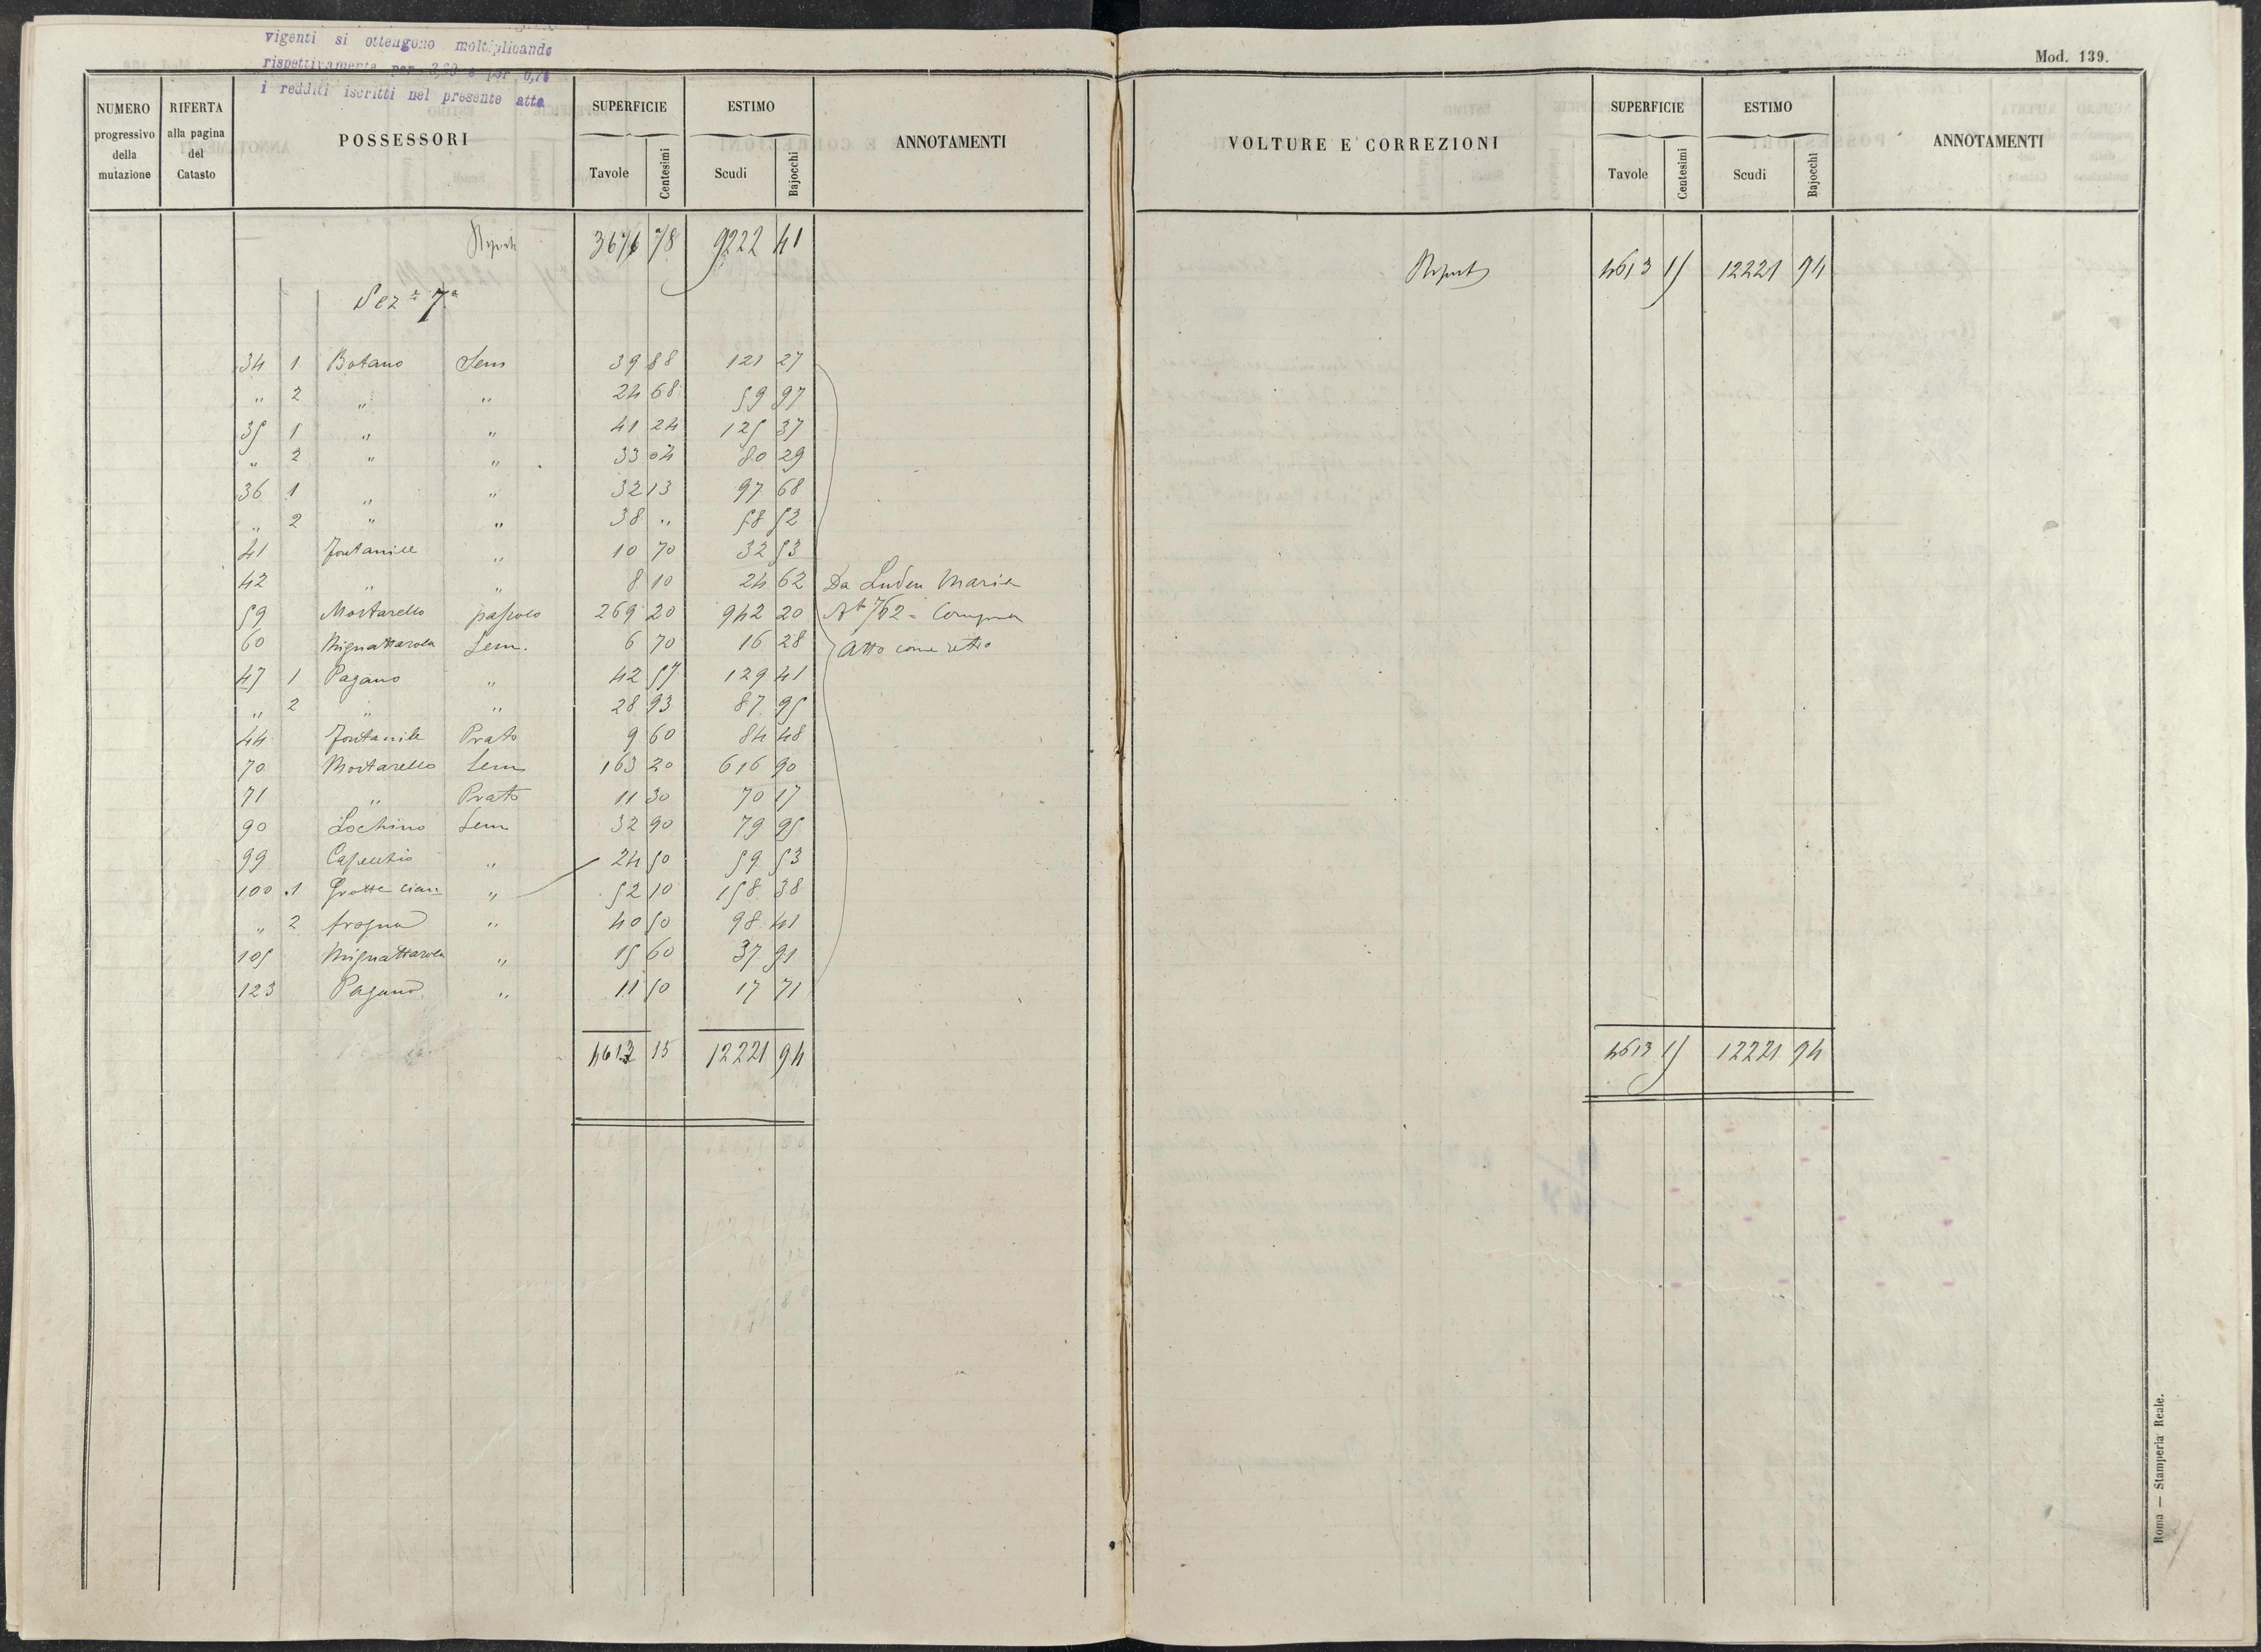 vigenti si ottengono moltiplicando
rispettivamente per 3,60 e per 0,78
i redditi iscritti nel presente atto
NUMERO progressivo della mutazione
RIFERTA alla pagina del Catasto
POSSESSORI
SUPERFICIE Tavole Centesimi
ESTIMO Scudi Bajocchi
ANNOTAMENTI
Riporto 3676 78 9222 41
Sez.e 7a
34 1 Botano Sem 39 88 121 27
" 2 " " 24 68 59 97
35 1 " " 41 24 125 37
" 2 " " 33 04 80 29
36 1 " " 32 13 97 68
" 2 " " 38 " 58 52
41 Fontanile " 10 70 32 53
42 " " 8 10 24 62 Da Maria
59 Mortarello pascolo 269 20 942 20 Art 762
60 Mignattarola Sem. 6 70 16 28 Atto come retro
47 1 Pagano " 42 57 129 41
" 2 " " 28 93 87 95
44 Fontanile Prato 9 60 84 48
70 Mortarello Sem 163 20 616 90
71 " Prato 11 30 70 17
90 Lochino Sem 32 90 79 95
99 " 24 50 59 53
100 1 Grotte " 52 10 158 38
" 2 " 40 50 98 41
105 Mignattarola " 15 60 37 91
123 Pagano " 11 50 17 71
4613 15 12221 94
Mod. 139.
VOLTURE E CORREZIONI
SUPERFICIE Tavole Centesimi
ESTIMO Scudi Bajocchi
ANNOTAMENTI
Riporto 4613 15 12221 94
4613 15 12221 94
Roma — Stamperia Reale.